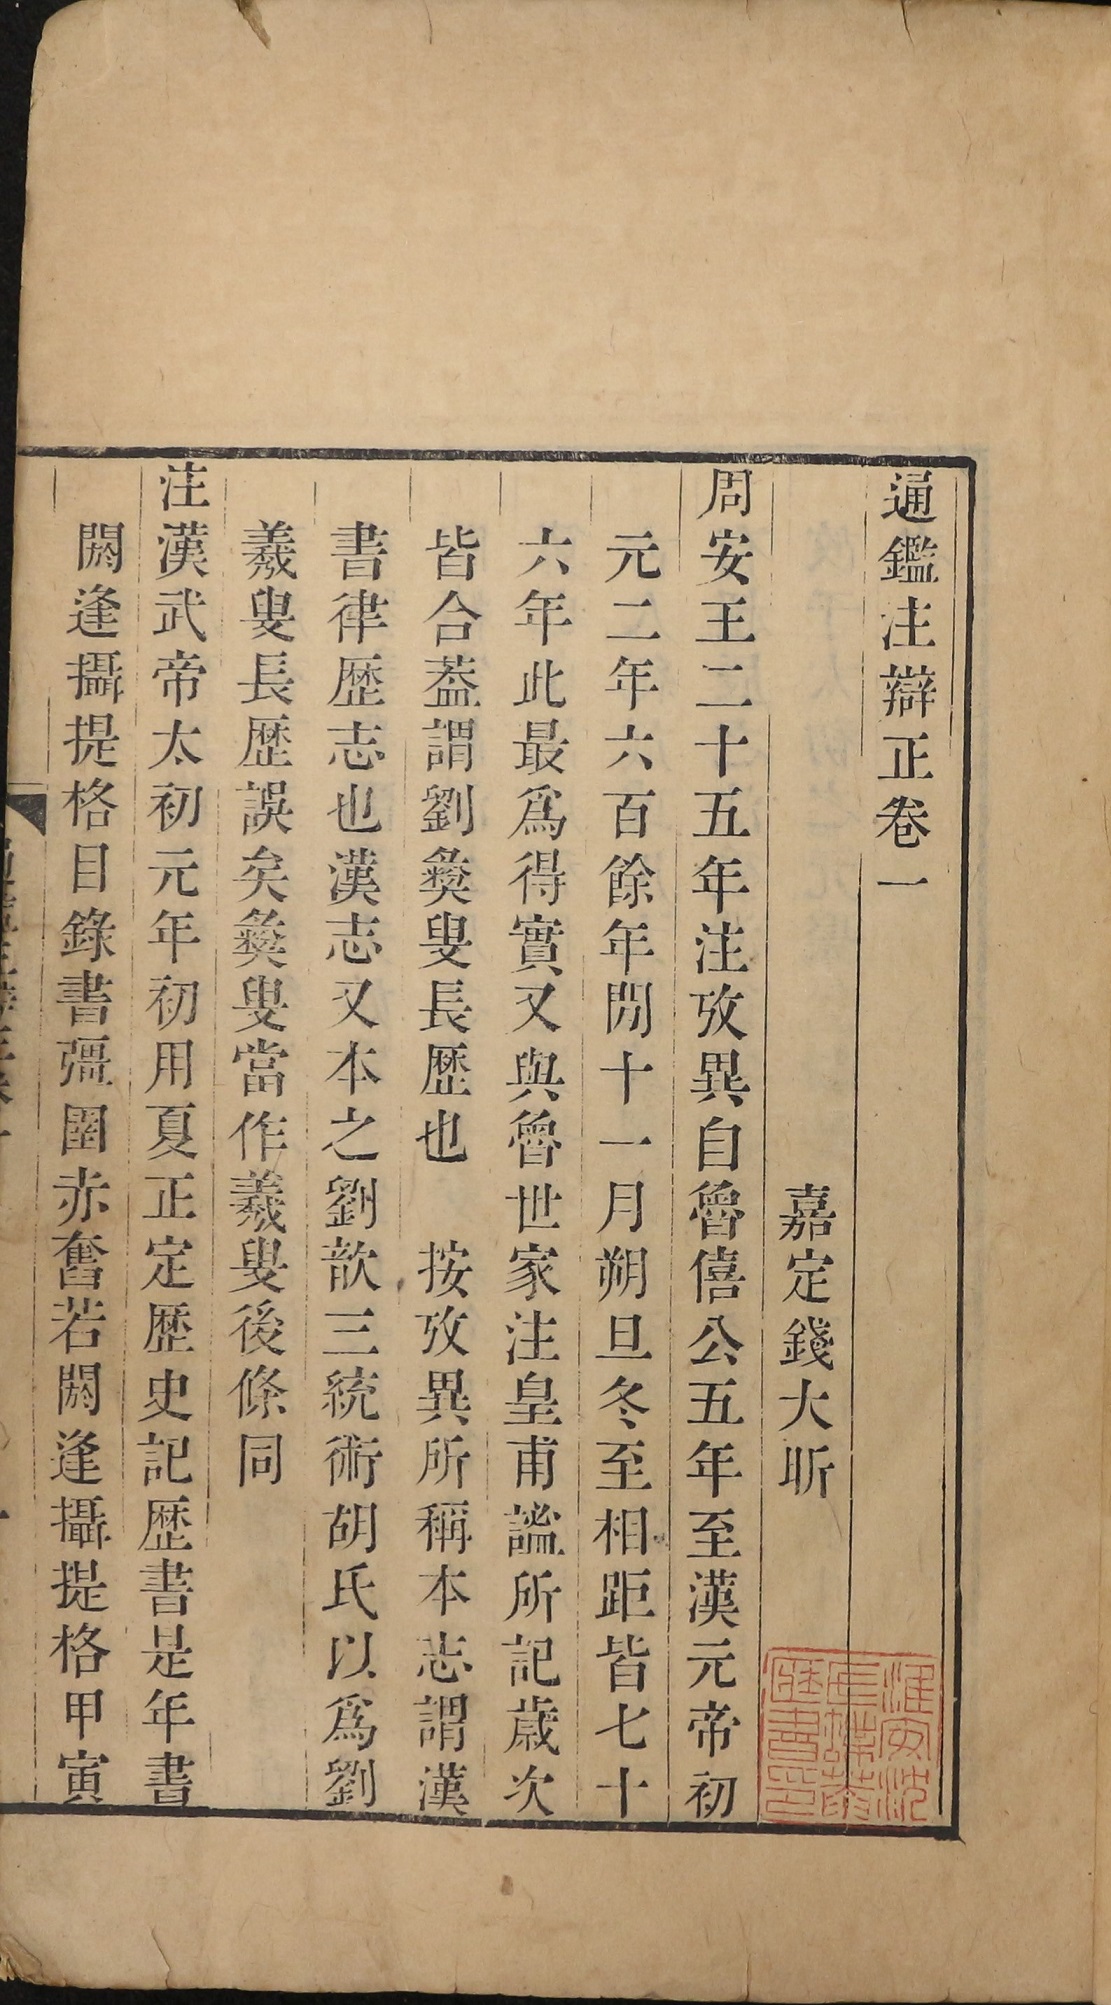 通鑑注辯正卷一
嘉定錢大昕
周安王二十五年注攷異自魯僖公五年至漢元帝初
元二年六百餘年閒十一月朔旦冬至相距皆七十
六年此最爲得實又與魯世家注皇甫謐所記歲次
皆合葢謂劉羲叟長歴也　按攷異所稱本志謂漢
書律歴志也漢志又本之劉歆三統術胡氏以爲劉
羲叟長歴誤矣彜叟當作羲叟後條同
注漢武帝太初元年初用夏正定歴史記歴書是年書
閼逢攝提格目錄書彊圉赤奮若閼逢攝提格甲寅